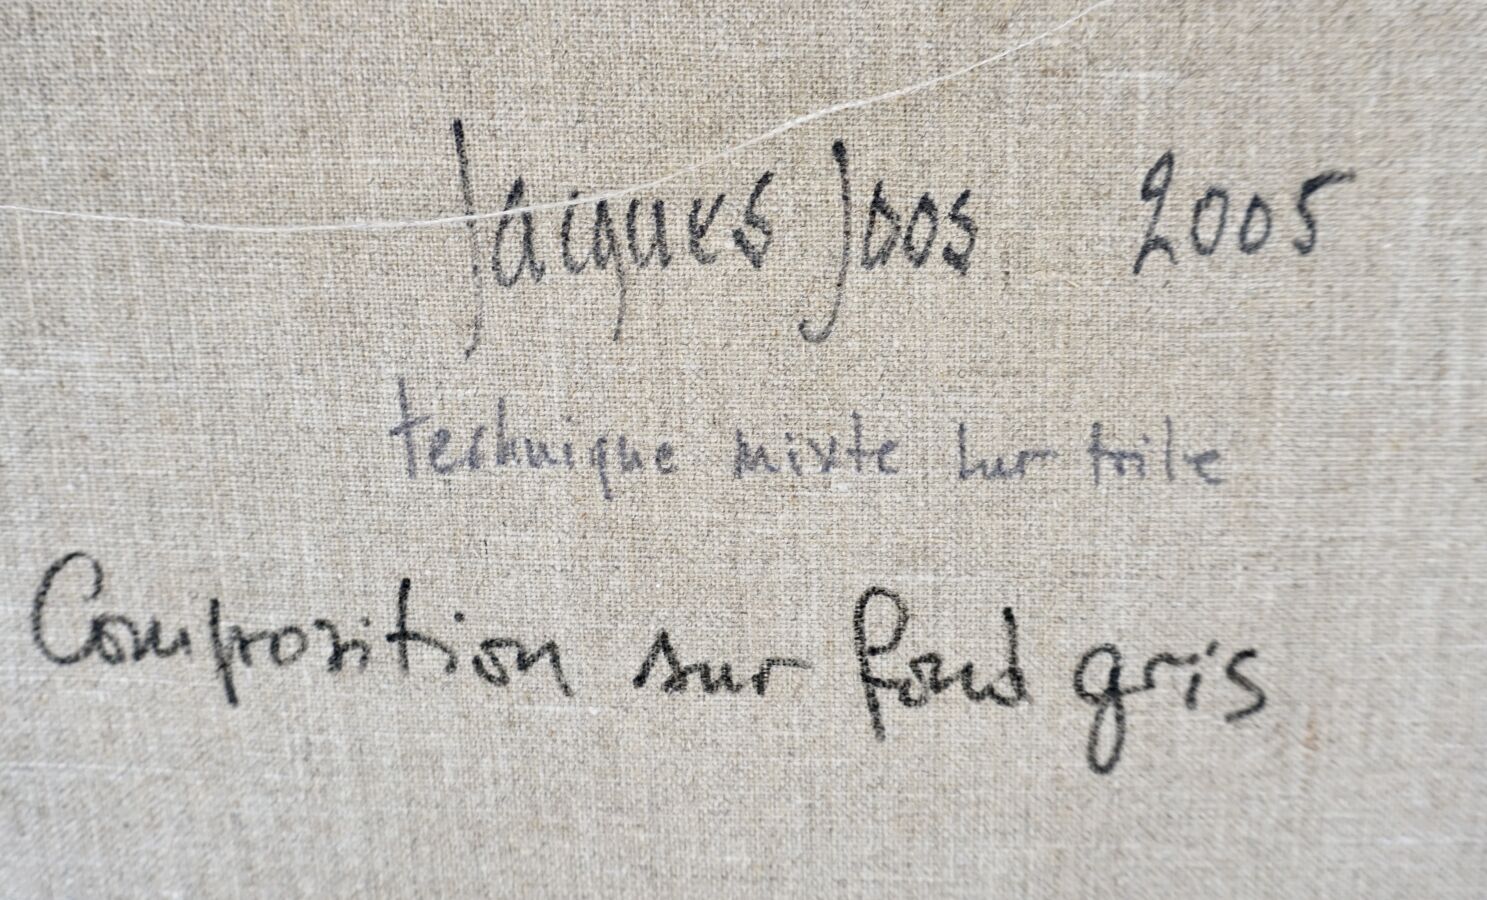 Jacques Joos 2005
technique mixte sur toile
Composition sur fond gris